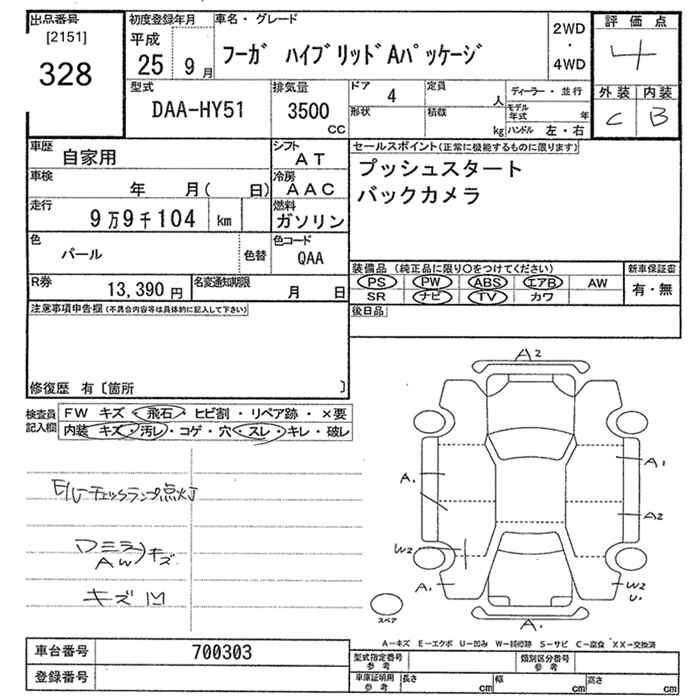 出品番号
[2151]
328
初度登録年月
平成
25 9月
車名・グレード
フーガ ハイブリッドAパッケージ
2WD
・
4WD
評価点
4
外装 内装
C B
型式
DAA-HY51
排気量
3500
CC
ドア
4
定員
人
形状
積載
kg
ディーラー・並行
モデル
年式
年
ハンドル 左・右
車歴
自家用
シフト
AT
車検
年 月( 日)
冷房
AAC
走行
9万9千104 km
燃料
ガソリン
色
パール
色替
色コード
QAA
R券
13,390 円
名変通知期限
月 日
セールスポイント(正常に機能するものに限ります)
プッシュスタート
バックカメラ
装備品 (純正品に限り○をつけてください)
PS PW ABS エアB AW
SR ナビ TV カワ
新車保証書
有・無
後日品
注意事項申告欄(不具合内容等は具体的に記入して下さい)
修復歴 有〔箇所 〕
検査員
記入欄
FW キズ・飛石・ヒビ割・リペア跡・×要
内装 キズ・汚レ・コゲ・穴・スレ・キレ・破レ
E/Gチェックランプ点灯
ワミラ
AW
キズ
キズ凹
A2
A1
A2
A1
W2
A1
W2
U1
A1
スペア
A-キズ E-エクボ U-凹み W-補修跡 S-サビ C-腐食 XX-交換済
車台番号
700303
登録番号
型式指定番号
参考
類別区分番号
参考
車庫証明用
参考
長さ
cm
幅
cm
高さ
cm